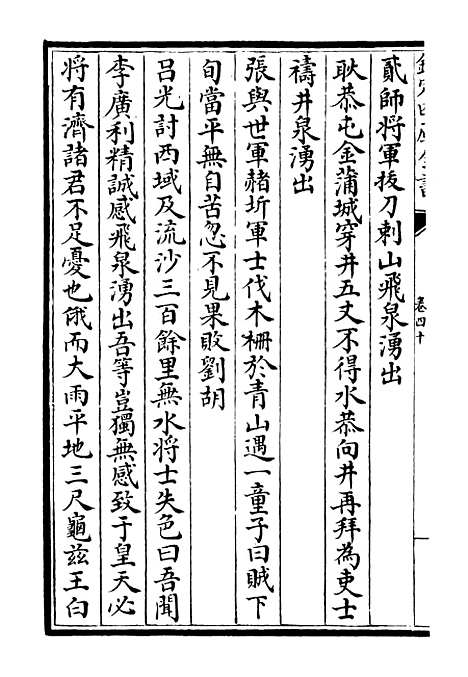 欽定四庫全書
卷四十
貳師將軍拔刀刺山飛泉湧出
耿恭屯金蒲城穿井五丈不得水恭向井再拜為吏士
禱井泉湧出
張興世軍赭圻軍士伐木柵於青山遇一童子曰賊下
旬當平無自苦忽不見果敗劉胡
呂光討西域及流沙三百餘里無水將士失色曰吾聞
李廣利精誠感飛泉湧出吾等豈獨無感致于皇天必
將有濟諸君不足憂也俄而大雨平地三尺龜兹王白